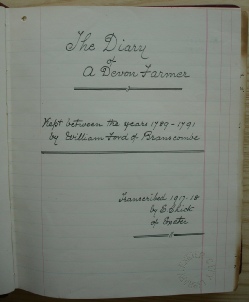 The Diary
of
A Devon Farmer
Kept between the years 1789-1791
by William Ford of Branscombe
Transcribed 1917-18
by E. Chick
of Exeter